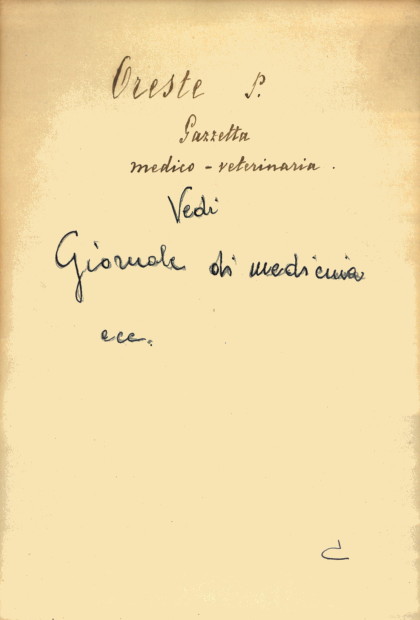 Oreste P.
Gazzetta
medico-veterinaria.
Vedi
Giornale di medicina
ecc.